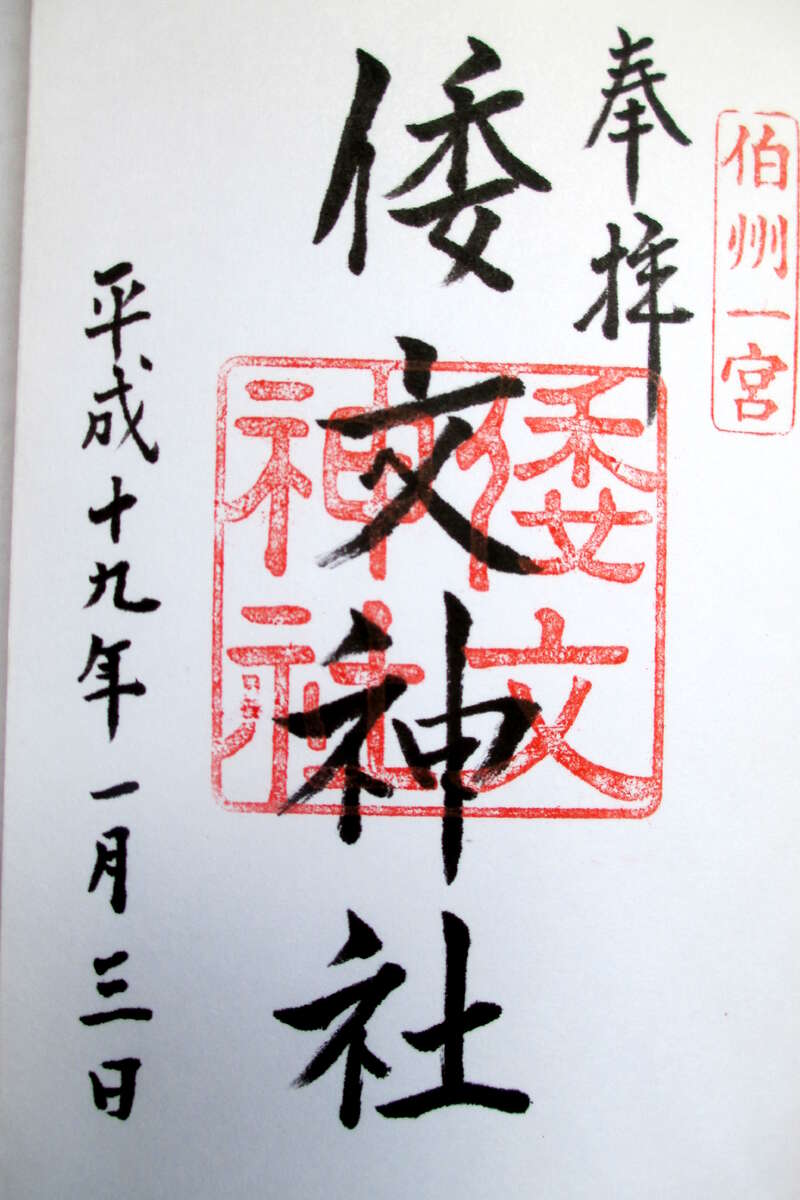 伯州一宮
奉拝
倭文神社
倭文
神社
平成十九年一月三日